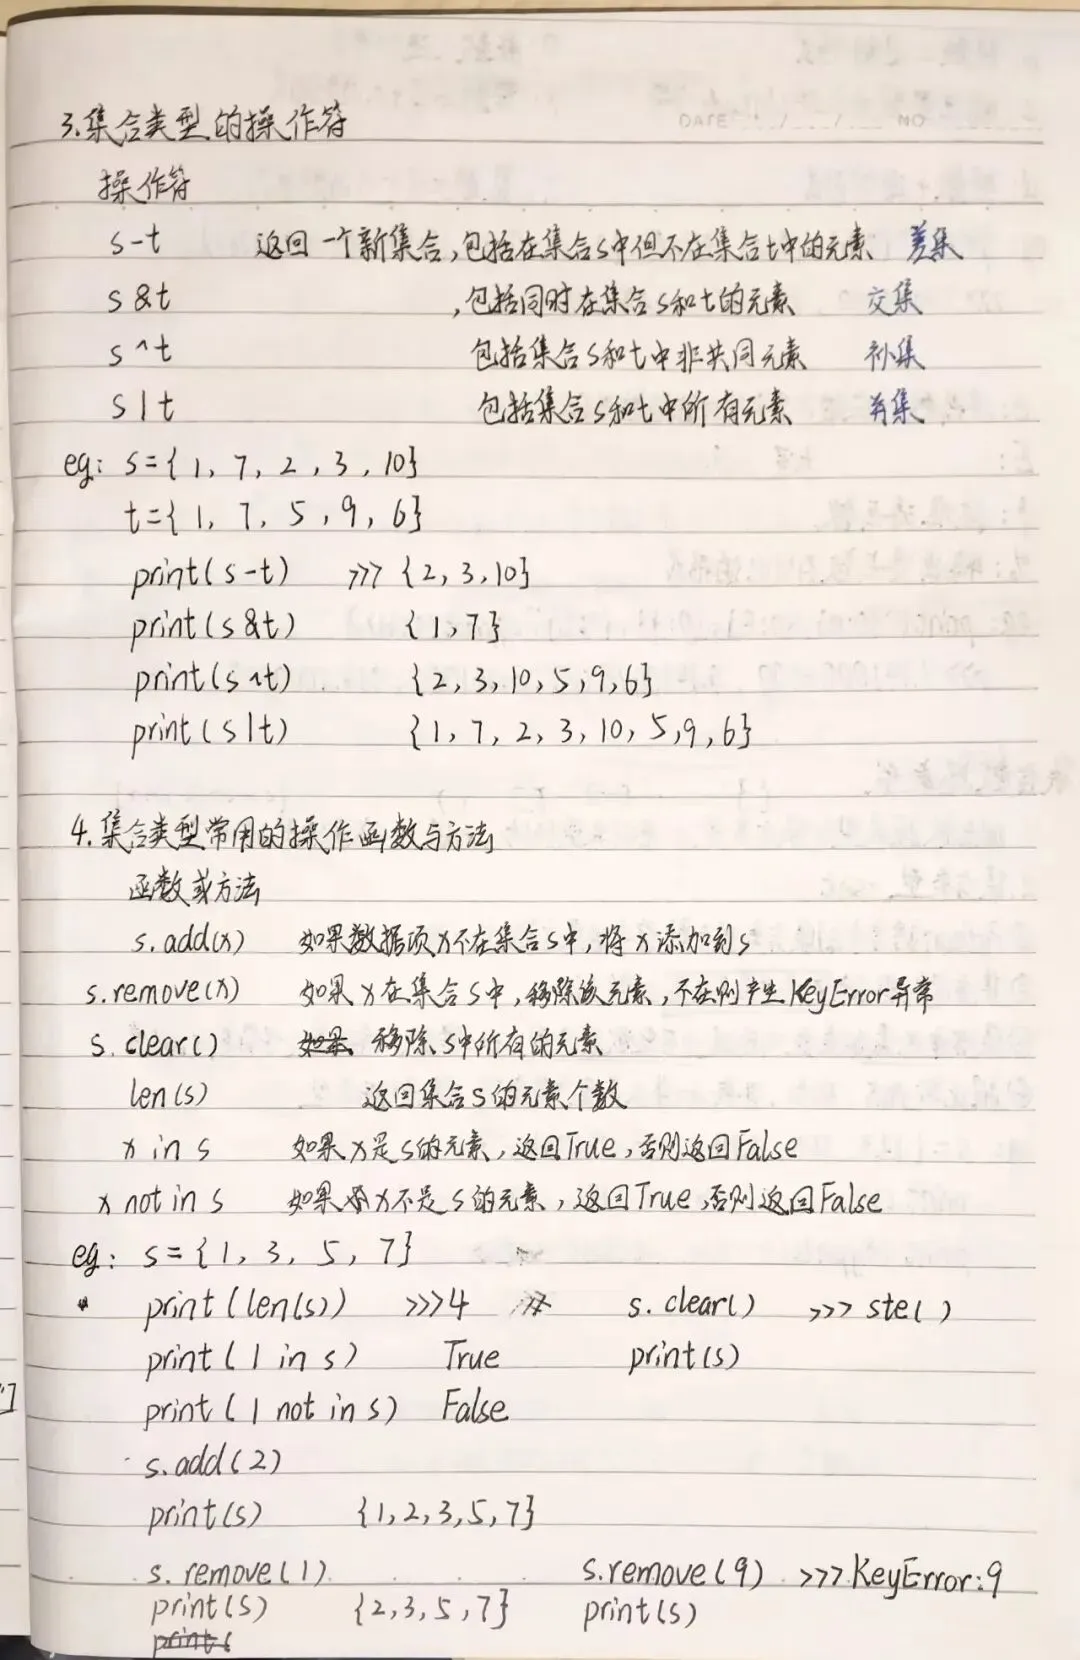 3.集合类型的操作符
操作符
s-t 返回一个新集合,包括在集合s中但不在集合t中的元素 差集
s&t ,包括同时在集合s和t的元素 交集
s^t 包括集合s和t中非共同元素 补集
s|t 包括集合s和t中所有元素 并集
eg: s={1,7,2,3,10}
t={1,7,5,9,6}
print(s-t) >>> {2,3,10}
print(s&t) {1,7}
print(s^t) {2,3,10,5,9,6}
print(s|t) {1,7,2,3,10,5,9,6}
4.集合类型常用的操作函数与方法
函数或方法
s.add(x) 如果数据项x不在集合s中,将x添加到s
s.remove(x) 如果x在集合s中,移除该元素,不在则产生KeyError异常
s.clear() 如果 移除s中所有的元素
len(s) 返回集合s的元素个数
x in s 如果x是s的元素,返回True,否则返回False
x not in s 如果x不是s的元素,返回True,否则返回False
eg: s={1,3,5,7}
print(len(s)) >>>4 s.clear() >>> ste()
print(1 in s) True print(s)
print(1 not in s) False
s.add(2)
print(s) {1,2,3,5,7}
s.remove(1) s.remove(9) >>>KeyError:9
print(s) {2,3,5,7} print(s)
print(